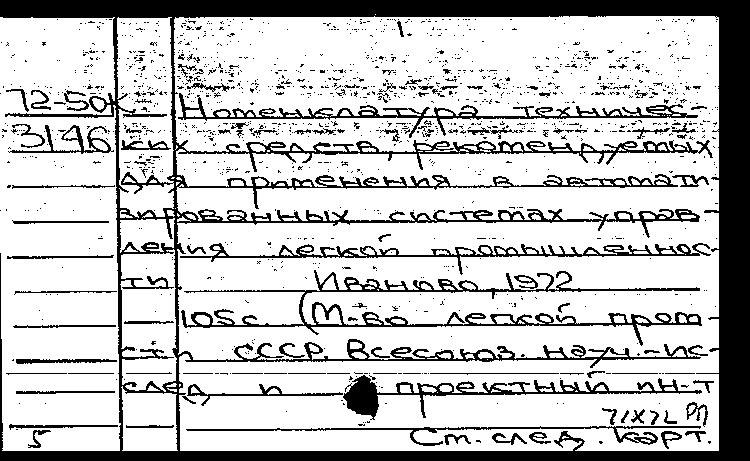 1.
72-50К Номенклатура техничес-
3146 ких средств, рекомендуемых
для применения в автомати-
зированных системах управ-
ления легкой промышленнос-
ти. Иваново, 1972.
105 с. (М-во легкой пром-
сти СССР. Всесоюз. науч.-ис-
след. и проектный ин-т
71X72 РП
5 См. след. карт.